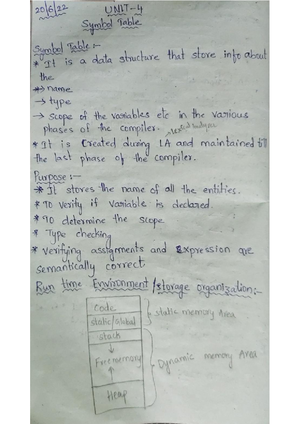 20/6/22 UNIT-4
Symbol Table
Symbol Table :-
* It is a data structure that store info about
the
*→ name
→ type
→ Scope of the variables etc in the various
phases of the compiler.
* It is Created during LA and maintained till
the last phase of the compiler.
Purpose :-
* It stores the name of all the entities.
* To verify if variable is declared.
* To determine the scope
* Type checking
* Verifying assignments and Expression are
semantically correct.
Run time Environment / storage organization:-
Code
static/Global
static memory Area
stack
Free memory
Dynamic memory Area
Heap